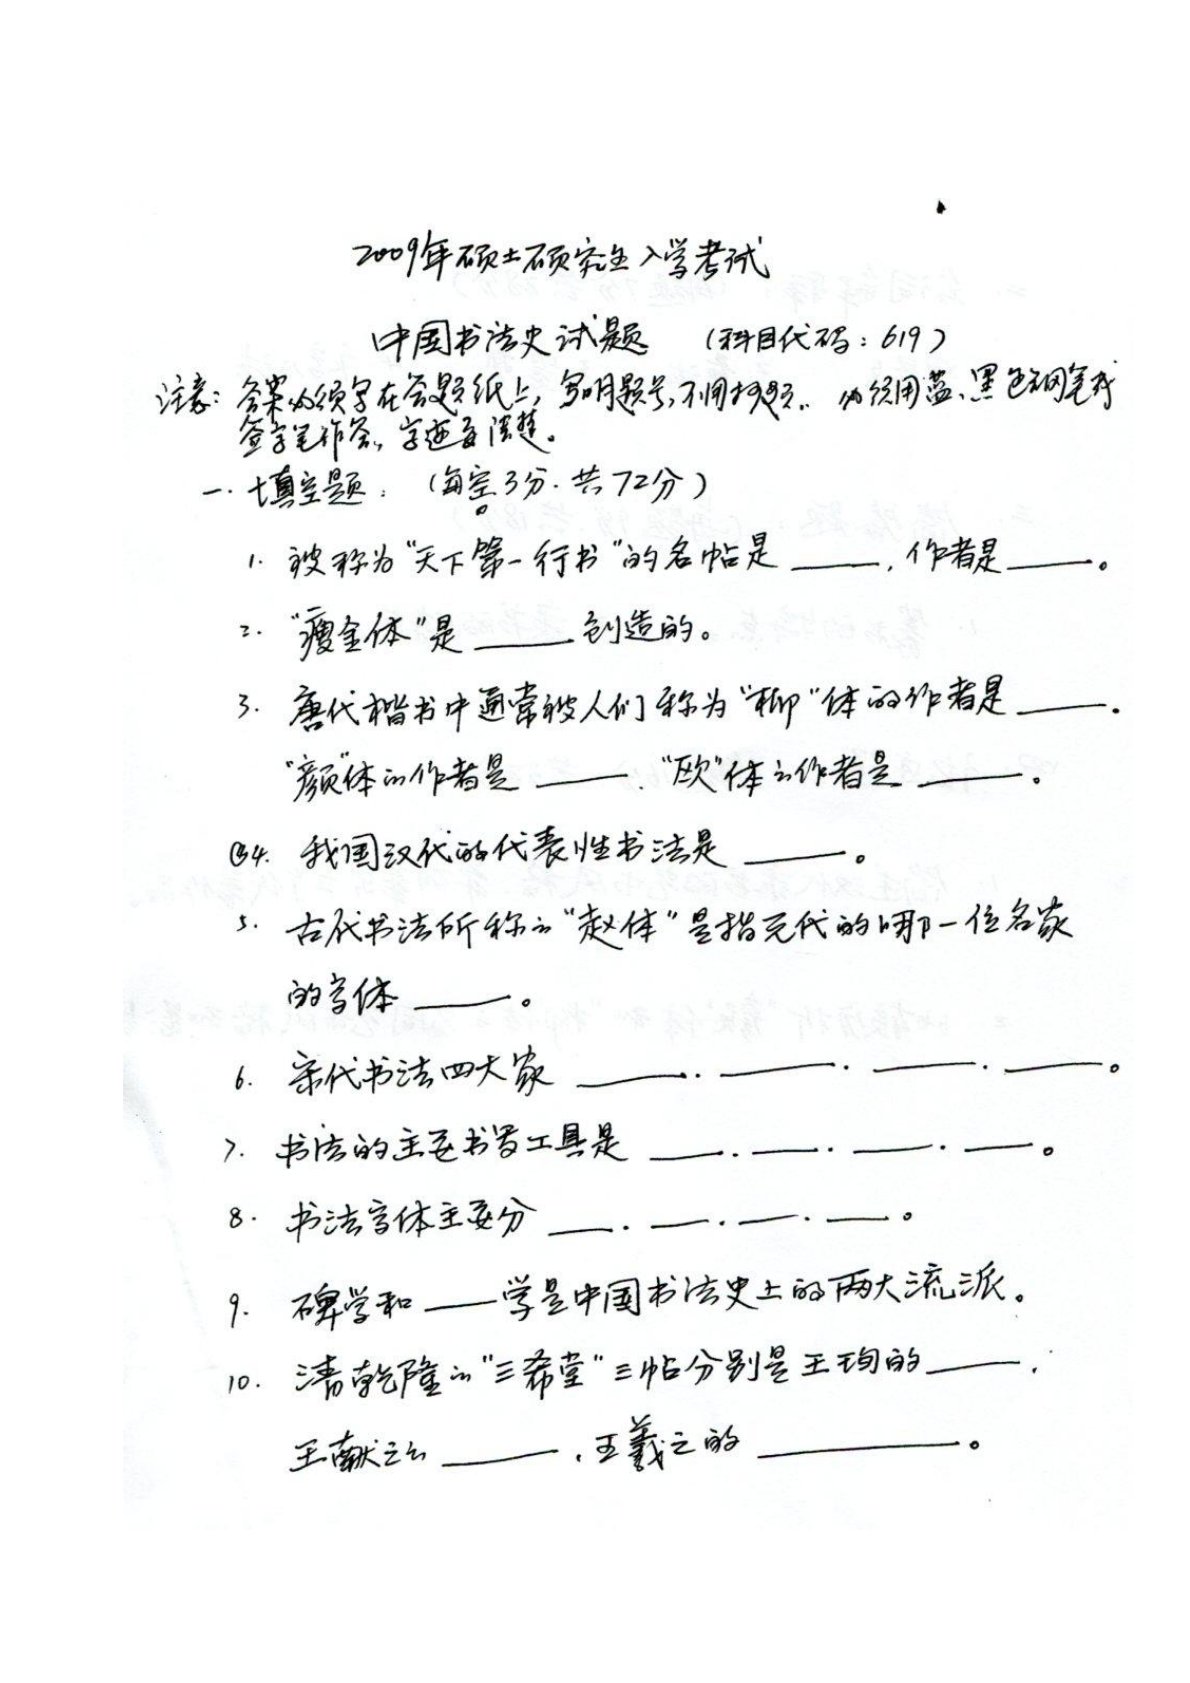 2009年硕士研究生入学考试
中国书法史试题 (科目代码:619)
注意: 答案必须写在答题纸上,写明题号,不用抄题. 必须用蓝、黑色钢笔或
签字笔作答, 字迹要清楚。
一. 填空题: (每空3分.共72分)
1. 被称为"天下第一行书"的名帖是____,作者是____。
2. "瘦金体"是____创造的。
3. 唐代楷书中通常被人们称为"柳"体的作者是____.
"颜"体的作者是____."欧"体的作者是____。
4. 我国汉代的代表性书法是____。
5. 古代书法所称的"赵体"是指元代的哪一位名家
的字体____。
6. 宋代书法四大家____.____.____.____。
7. 书法的主要书写工具是____.____.____.____。
8. 书法字体主要分____.____.____.____。
9. 碑学和____学是中国书法史上的两大流派。
10. 清乾隆的"三希堂"三帖分别是王珣的____,
王献之的____,王羲之的____。